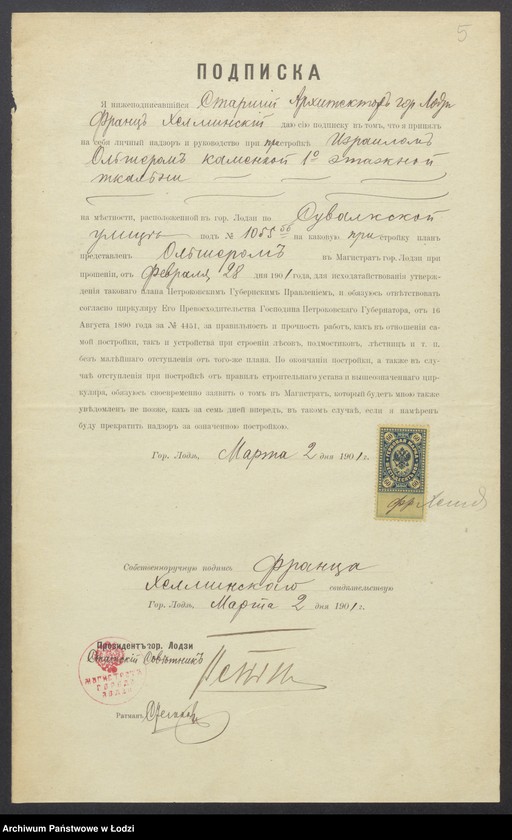 5
ПОДПИСКА
Я нижеподписавшійся Старшій Архитекторъ гор. Лодзи
Францъ Хелминскій даю сію подписку въ томъ, что я принялъ
на себя личный надзоръ и руководство при пристройкѣ Израилемъ
Ольшеромъ каменной 1º этажной
ткальни
на мѣстности, расположенной къ гор. Лодзи по Сувалкской
улицѣ подъ № 1055 на каковую пристройку планъ
представленъ Ольшеромъ въ Магистратъ гор. Лодзи при
прошеніи, отъ Февраля 28 дня 1901 года, для исходатайствованія утверж-
денія таковаго плана Петроковскимъ Губернскимъ Правленіемъ, и обязуюсь отвѣтствовать
согласно циркуляру Его Превосходительства Господина Петроковскаго Губернатора, отъ 16
Августа 1890 года за № 4451, за правильность и прочность работъ, какъ въ отношеніи са-
мой постройки, такъ и устройства при строеніи лѣсовъ, подмостковъ, лѣстницъ и т. п.
безъ малѣйшаго отступленія отъ того-же плана. По окончаніи постройки, а также въ слу-
чаѣ отступленія при постройкѣ отъ правилъ строительнаго устава и вышеозначеннаго цир-
куляра, обязуюсь своевременно заявить о томъ въ Магистратъ, который будетъ мною также
увѣдомленъ не позже, какъ за семь дней впередъ, въ такомъ случаѣ, если я намѣренъ
буду прекратить надзоръ за означенною постройкою.
Гор. Лодзь, Марта 2 дня 1901 г.
фр Хелм
Собственноручную подпись Франца
Хелминскаго свидѣтельствую
Гор. Лодзь, Марта 2 дня 1901 г.
Президентъ гор. Лодзи
Статскій Совѣтникъ
МАГИСТРАТЪ
ГОРОДА
ЛОДЗИ
Ратманъ,
Archiwum Państwowe w Łodzi